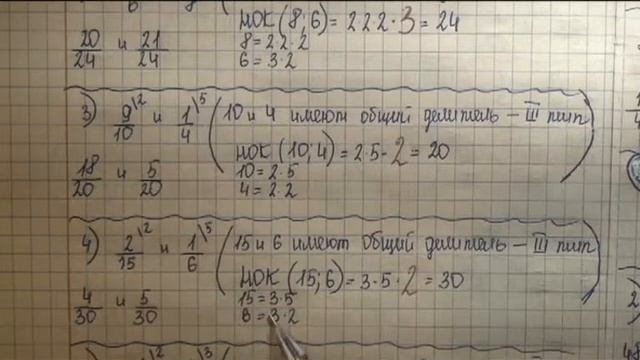 НОК (8; 6) = 2·2·2·3 = 24
20/24 и 21/24
8 = 2·2·2
6 = 3·2
3) 9/10 \2 и 1/4 \5 (10 и 4 имеют общий делитель – III тип)
НОК (10; 4) = 2·5·2 = 20
18/20 и 5/20
10 = 2·5
4 = 2·2
4) 2/15 \2 и 1/6 \5 (15 и 6 имеют общий делитель – III тип
НОК (15; 6) = 3·5·2 = 30
4/30 и 5/30
15 = 3·5
8 = 3·2